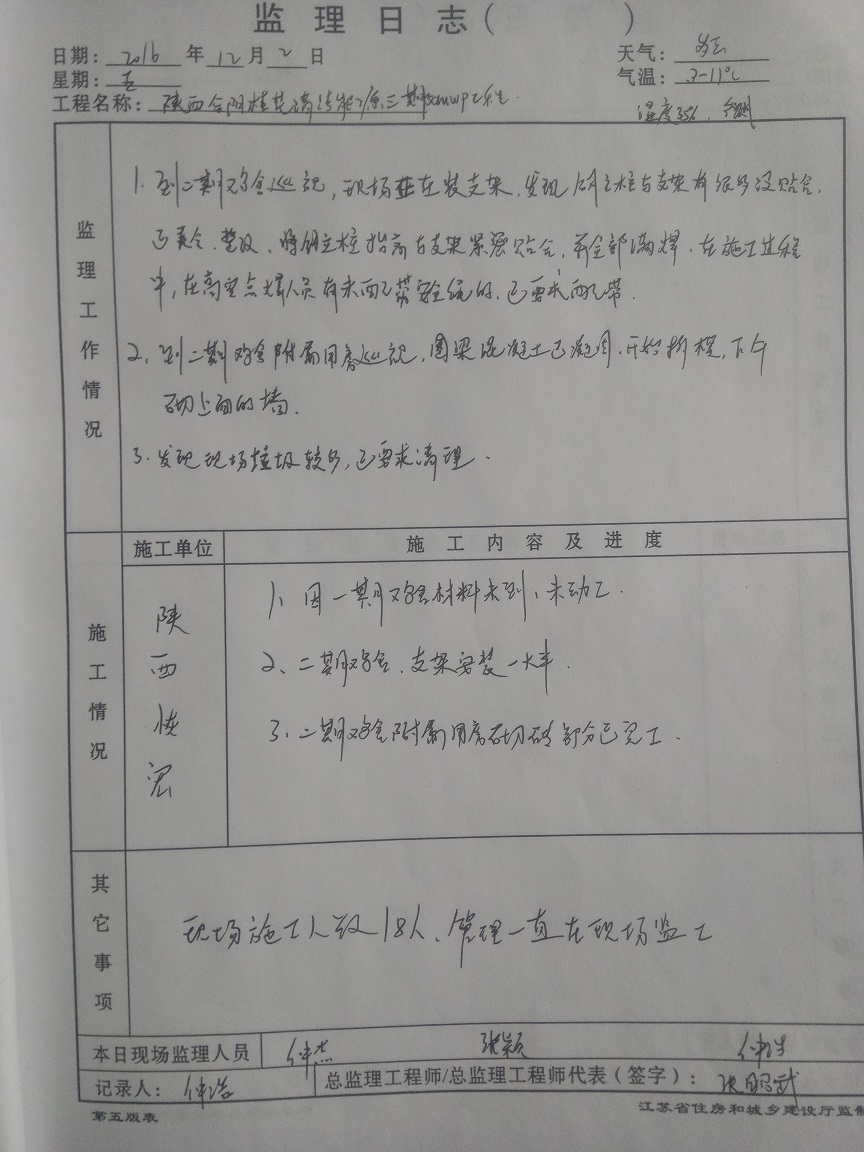 监理日志( )
日期: 2016 年 12 月 2 日 天气: 多云
星期: 五 气温: 3-11℃
工程名称: 陕西合阳桂花清洁能源三期 工程 湿度35%
监理工作情况
1. 到二期鸡舍巡视,现场正在装支架,发现 立柱与支架有很多没贴合.
已责令.整改、将钢立柱抬高与支架紧密贴合,并全部满焊.在施工过程
中,在高空点焊人员有未佩带安全绳的.已要求佩带.
2. 到二期鸡舍附属用房巡视,圈梁混凝土已凝固.开始拆模,下午
砌上面的墙.
3. 发现现场垃圾较多,已要求清理.
施工单位 施工内容及进度
施工情况
陕西恢宏
1、因一期鸡舍材料未到、未动工.
2、二期鸡舍.支架安装一大半.
3、二期鸡舍附属用房砌砖部分已完工.
其它事项
现场施工人数18人、管理一直在现场监工
本日现场监理人员 仲杰 张颖 仲浩
记录人: 仲浩 总监理工程师/总监理工程师代表(签字): 张 武
第五版表 江苏省住房和城乡建设厅监制